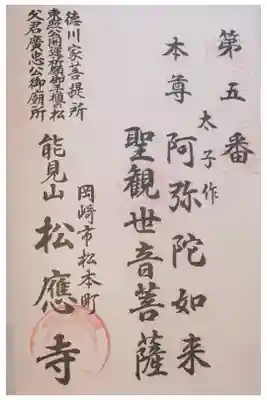 第五番
太子作
本尊 阿弥陀如来
聖観世音菩薩
岡崎市松本町
能見山 松應寺
徳川家菩提所
東照公開運祈願御手植の松
父君廣忠公御廟所